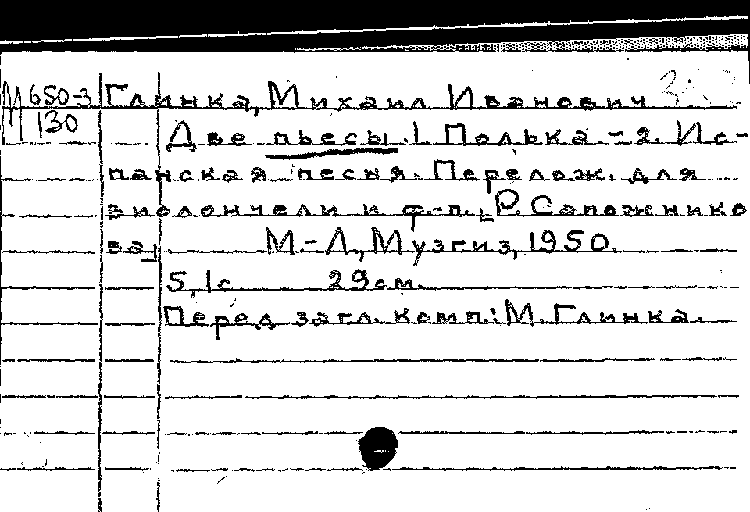 М650-3 Глинка, Михаил Иванович
130
Две пьесы. 1. Полька. - 2. Ис-
панская песня. Перелож. для
виолончели и ф.-п. [Р. Сапожнико
ва]. М.-Л., Музгиз, 1950.
5, 1с. 29см.
Перед загл. комп.: М. Глинка.